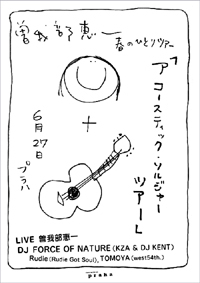 曽我部恵一
春のひとりツアー
「アコースティック・ソルジャー
ツアー」
6月27日
プラハ
LIVE 曽我部恵一
DJ FORCE OF NATURE (KZA & DJ KENT)
Rudie (Rudie Got Soul), TOMOYA (west54th.)
praha